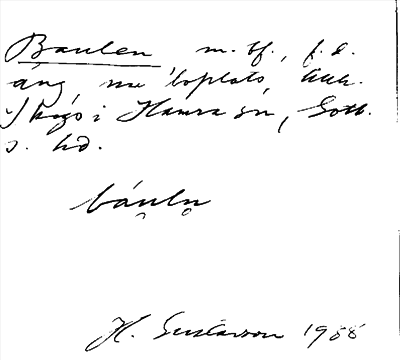 Baulen m. tf., f.d.
äng, nu boplats, huk.
Skogs i Hamra sn, Gotl.
s. hd.
báuln
H. Gustavson 1988